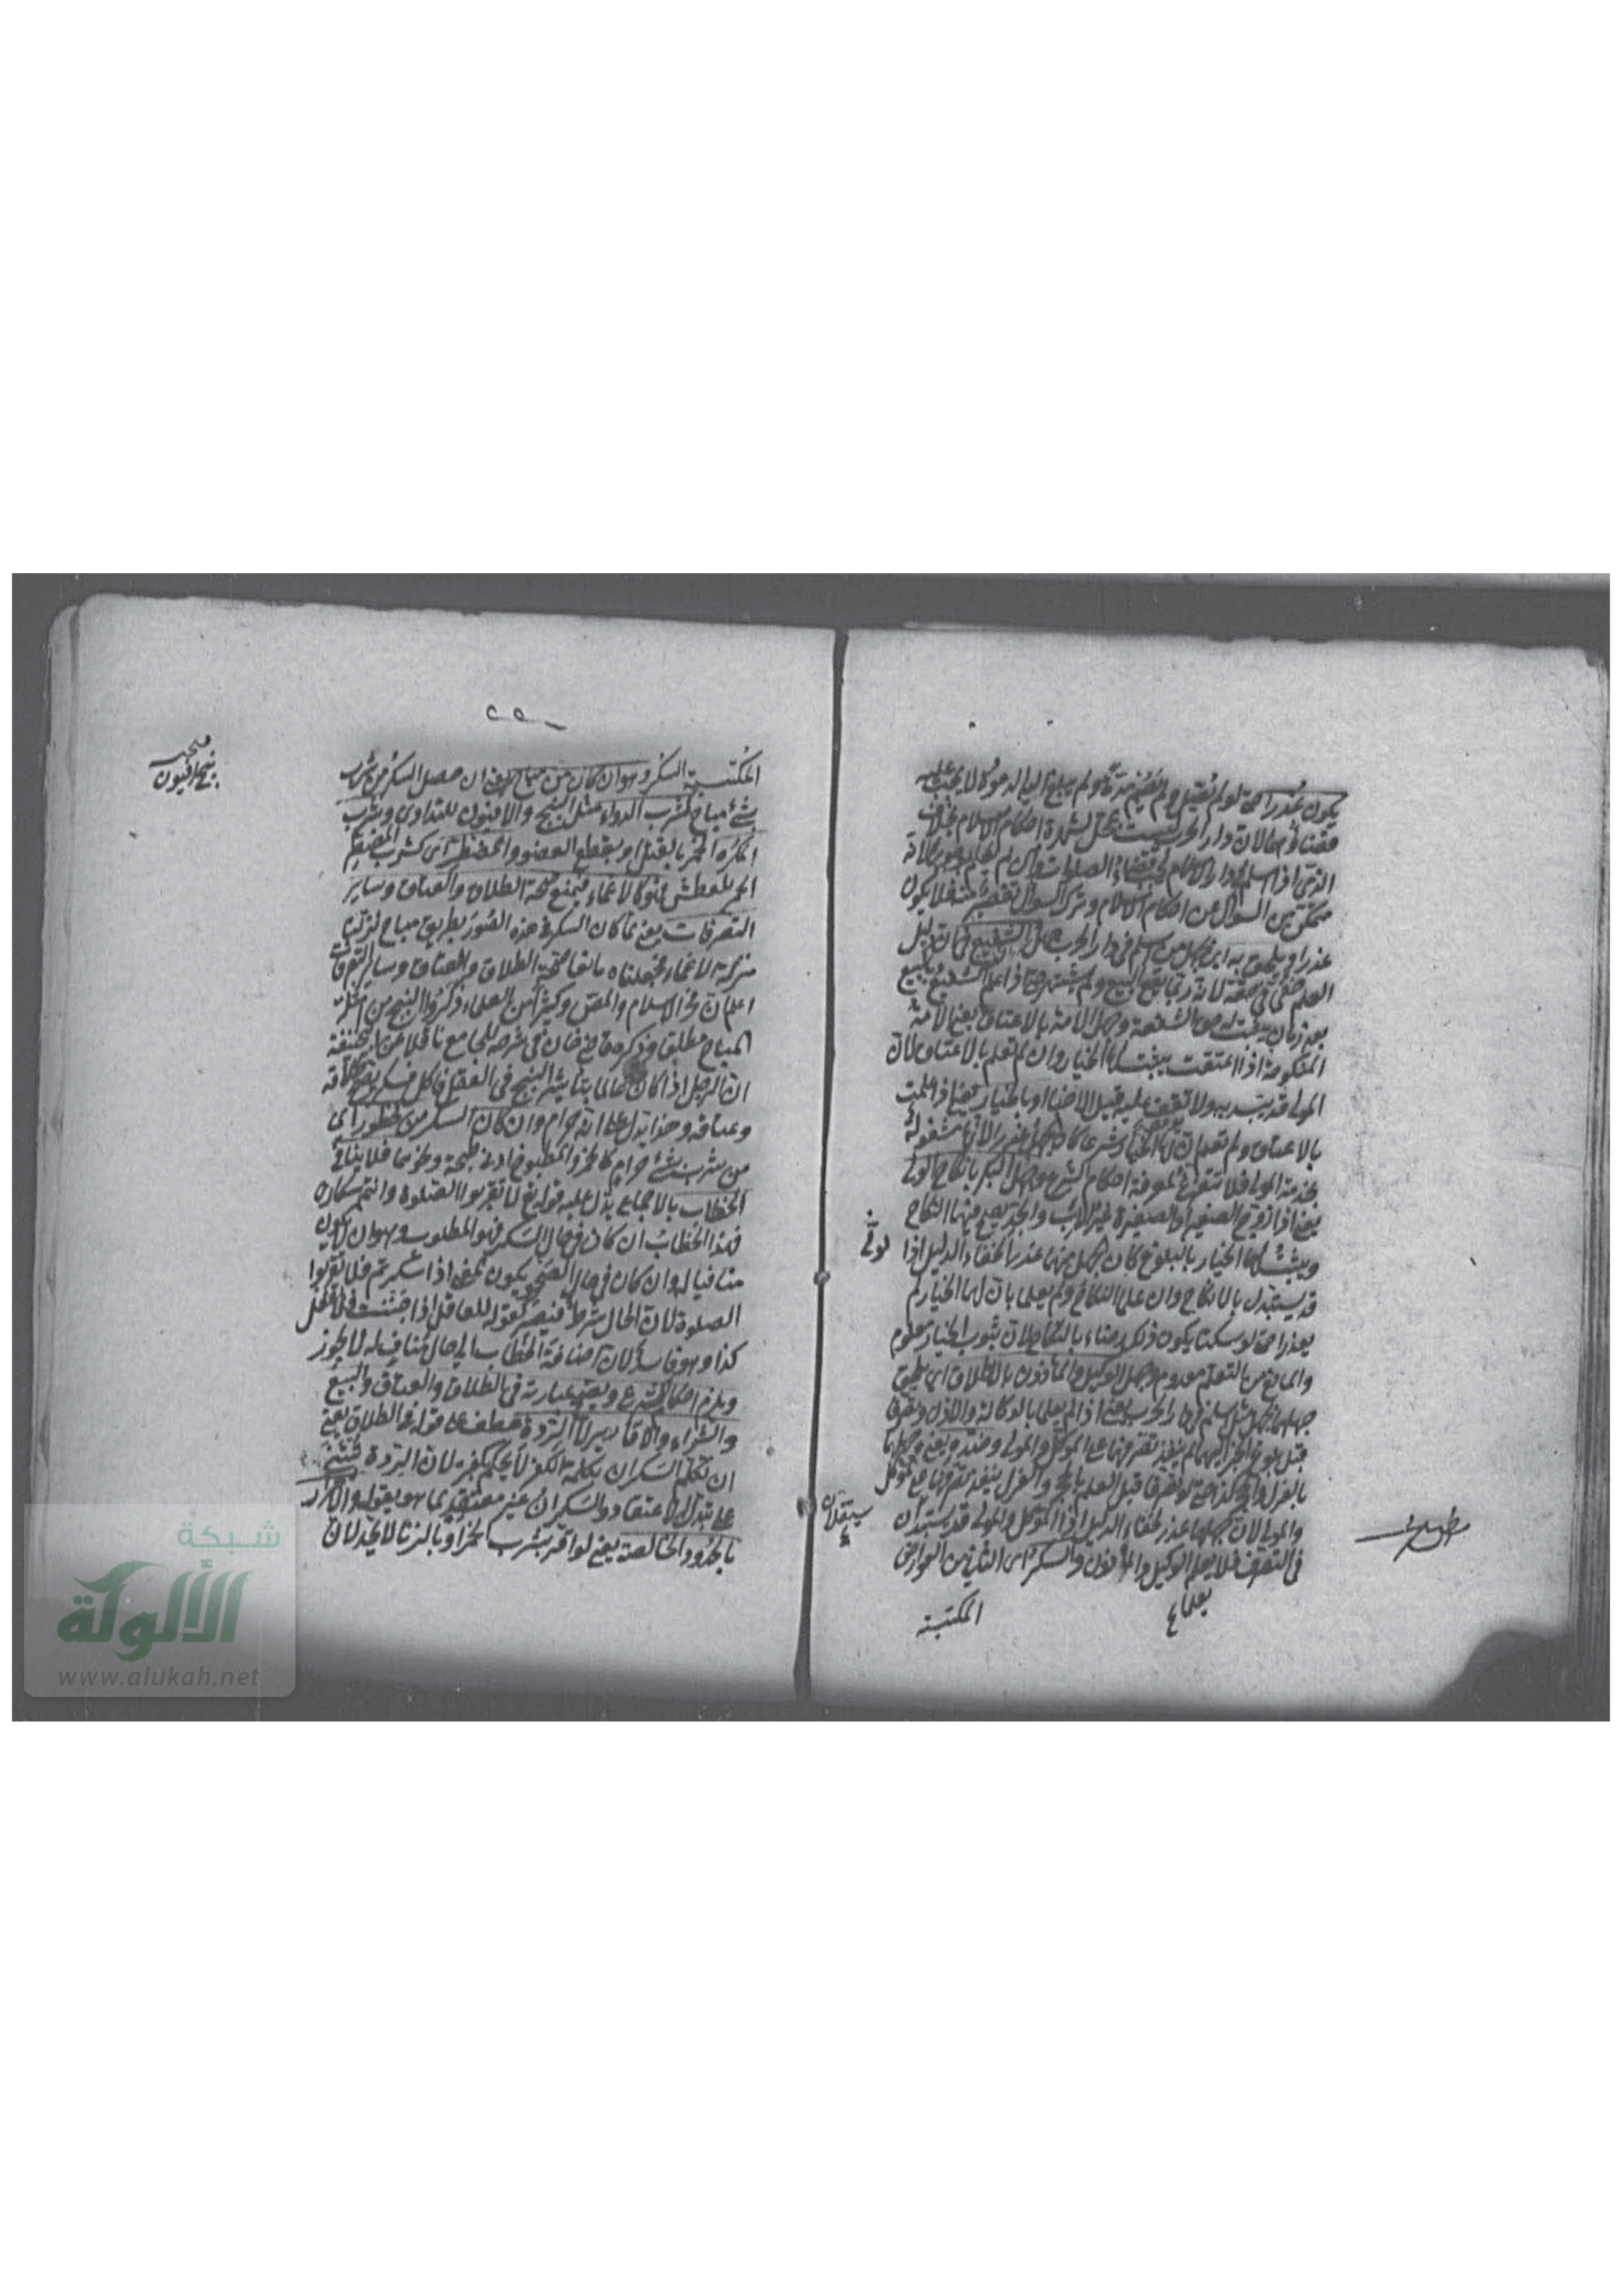 يكون عذرا حتى لو لم يصل ولم يصم مدة ولم يبلغ اليه الدعوة لا يجب عليه
قضاؤهما لان دار الحرب ليست بمحل لشهرة احكام الاسلام بخلاف
الذمي اذا اسلم في دار الاسلام يجب قضاء الصلوات وان لم يعلم بوجوبها لانه
متمكن من السوال عن احكام الاسلام وترك السوال تقصير منه فلا يكون
عذرا ويلحق به اي بجهل من اسلم في دار الحرب جهل الشفيع لان دليل
العلم خفي في حقه لانه ربما يقع البيع ولم يشتهر حتى اذا علم الشفيع بالبيع
بعد زمان يثبت له حق الشفعة وجهل الامة بالاعتاق يعني الامة
المنكوحة اذا اعتقت يثبت لها الخيار وان لم تعلم بالاعتاق لان
المولى قد يستبد به ولا تقف عليه قبل الاخبار او بالخيار يعني اذا علمت
بالاعتاق ولم تعلم ان لها الخيار شرعا كان الجهل عذرا لانها مشغولة
بخدمة المولى فلا تتفرغ لمعرفة احكام الشرع وجهل البكر بانكاح الولي
يعني اذا زوج الصغير او الصغيرة غير الاب والجد يصح فيها النكاح
ويثبت لهما الخيار بالبلوغ كان الجهل منهما عذرا لخفاء الدليل اذا الولي
قد يستبد بالانكاح وان علما النكاح ولم يعلما بان لهما الخيار لم
يعذرا حتى لو سكتا يكون ذلك رضاء بالنكاح لان ثبوت الخيار معلوم
والمانع من التعلم معدوم وجهل الوكيل والمأذون بالاطلاق اي يلحق
جهلهما بجهل من اسلم في دار الحرب يعني اذا لم يعلما بالوكالة والاذن وتصرفا
قبل بلوغ الخبر اليهما لم ينفذ تصرفهما على الموكل والمولى وضده ويعني جهلهما
بالعزل والحجر كذا حتى لو تصرفا قبل العلم بالحجر والعزل ينفذ تصرفهما على الموكل
والمولى لان جهلهما عذر لخفاء الدليل اذا الموكل والمولى قد يستبدان
في التصرف فلا يعلم الوكيل والمأذون والسكر اي الثاني من العوارض
المكتبة
يستقلان
٢٥٠
المكتسبة السكر وهو ان كان من مباح يعني ان حصل السكر من شرب
شئ مباح كشرب الدواء مثل البنج والافيون للتداوي وشرب
المكره الخمر بالقتل وبقطع العضو والمضطر اي كشرب المضطر
الخمر للعطش فهو كالاغماء فيمنع صحة الطلاق والعتاق وساير
التصرفات يعني لما كان السكر في هذه الصور بطريق مباح نزلناه
منزلة الاغماء فجعلناه مانعا صحة الطلاق والعتاق وساير التصرفات
اعلم ان فخر الاسلام والمصنف وكثيرا من العلماء ذكروا البنج من امثلة
المباح مطلقا وذكر قاضي خان في شرحه للجامع ناقلا عن ابي حنيفة
ان الرجل اذا كان عالما بتأثير البنج في العقل فاكل فسكر يصح طلاقه
وعتاقه وهذا يدل على انه حرام وان كان السكر من محظور اي
من شرب شئ حرام كالخمر والمطبوخ ادنى طبخة ونحوهما فلا ينافي
الخطاب بالاجماع يدل عليه قوله تع لا تقربوا الصلوة وانتم سكارى
فهذا الخطاب ان كان في حال السكر فهو المطلوب وهو ان لا يكون
منافيا له وان كان في حال الصحو يكون بمعنى اذا سكرتم فلا تقربوا
الصلوة لان الحال شرط فيصير كقوله للعاقل اذا جننت فلا تفعل
كذا وهو فاسد لان اضافة الخطاب الى حال مناف له لا يجوز
ويلزم احكام الشرع ويصح عبارته في الطلاق والعتاق والبيع
والشراء والاقارير لا الردة عطف على قوله في الطلاق يعني
ان تكلم السكران بكلمة الكفر لا يحكم بكفره لان الردة تبتني
على تبدل الاعتقاد والسكران غير معتقد بما هو يقوله والاقرار
بالحدود الخالصة يعني لو اقر بشرب الخمر او بالزنا لا يحد لان
شبكة
الألوكة
www.alukah.net